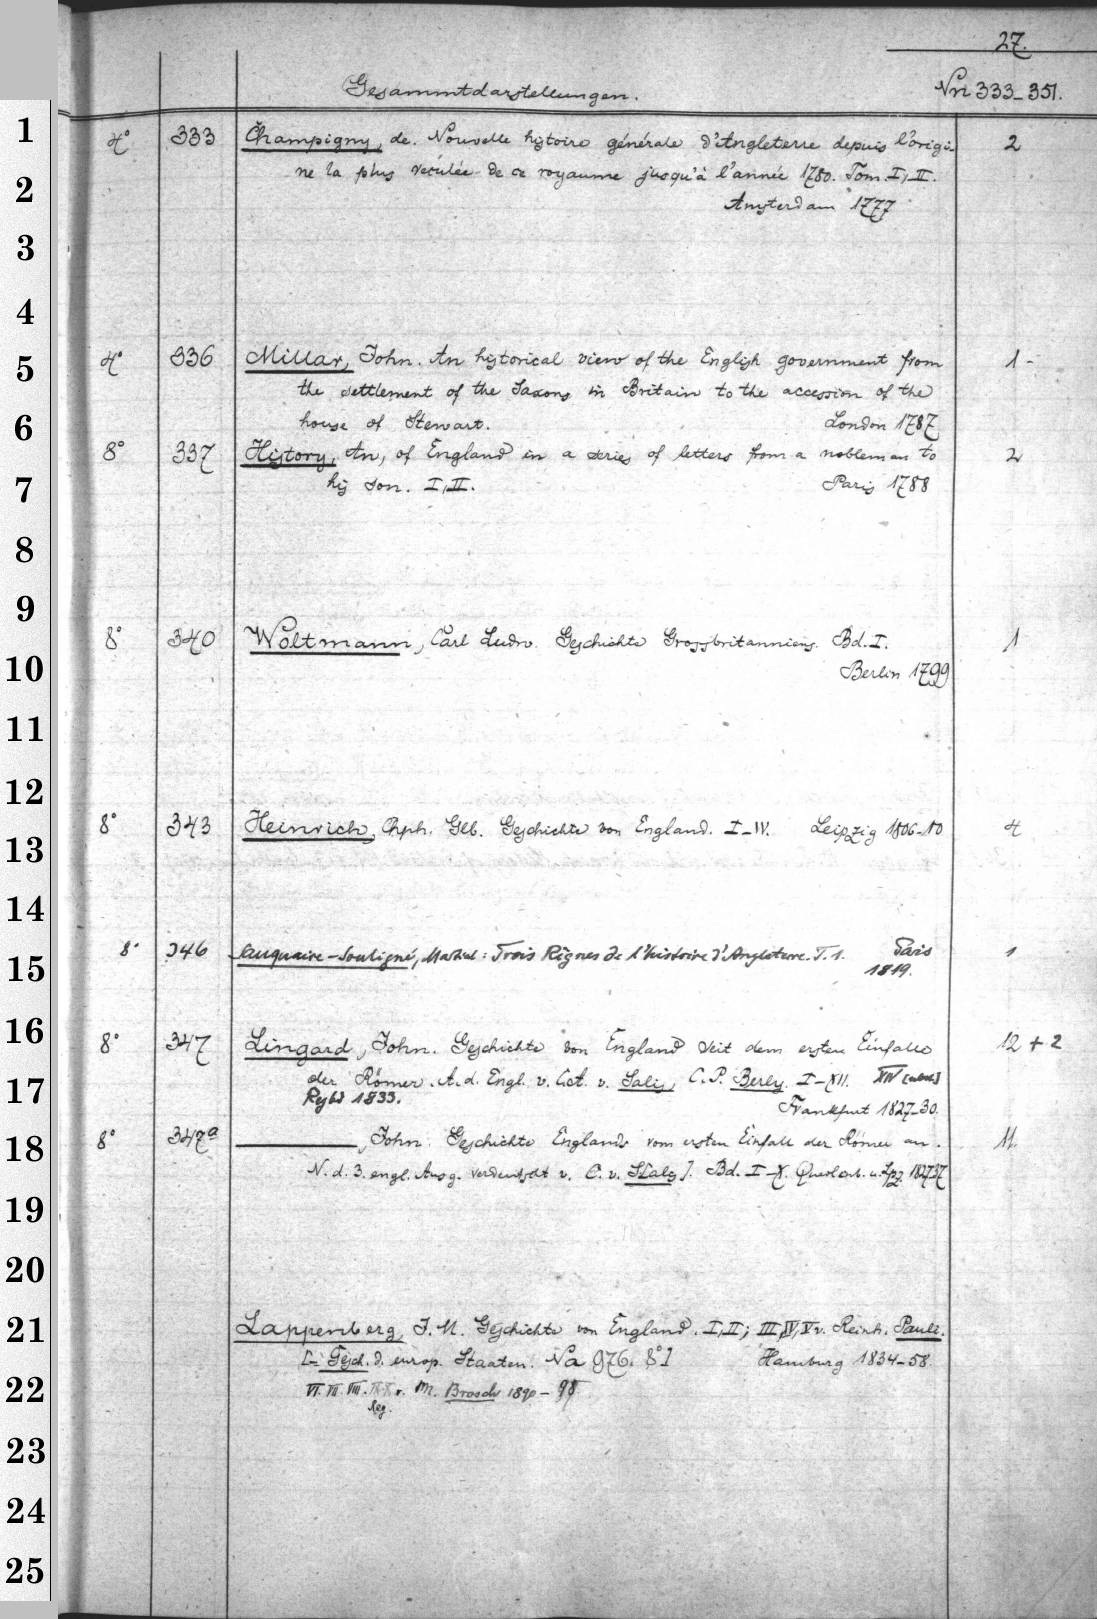 27.
Gesammtdarstellungen.
Nri 333-351.
1
4° 333 Champigny, de. Nouvelle histoire générale d'Angleterre depuis l'origi- 2
2
ne la plus reculée de ce royaume jusqu'à l'année 1780. Tom. I, II.
Amsterdam 1777
3
4
5
4° 336 Millar, John. An historical view of the English government from 1-
the settlement of the Saxons in Britain to the accession of the
6
house of Stewart. London 1787
8° 337 History, An, of England in a series of letters from a nobleman to 2
7
his son. I, II. Paris 1788
8
9
8° 340 Woltmann, Carl Ludw. Geschichte Grossbritanniens. Bd. I. 1
10
Berlin 1799
11
12
8° 343 Heinrich, Chph. Glb. Geschichte von England. I-IV. Leipzig 1806-10 4
13
14
8° 346 Sauquaire-Souligné, Martial: Trois Règnes de l'histoire d'Angleterre. T. 1. Paris 1
15
1819.
16
8° 347 Lingard, John. Geschichte von England seit dem ersten Einfalle 12 + 2
17
der Römer. A. d. Engl. v. C. A. v. Salis, C. P. Berly. I-XII. XIV
1833.
Frankfurt 1827-30.
18
8° 347a ———, John. Geschichte Englands vom ersten Einfall der Römer an. 11.
N. d. 3. engl. Ausg. verdeutscht v. C. v. S[alis]. Bd. I-X. Quedlinb. u. Lpz. 1827/37
19
20
21
Lappenberg, J. M. Geschichte von England. I, II; III, IV, V v. Reinh. Pauli.
[= Gesch. d. europ. Staaten. Na 976. 8°] Hamburg 1834-58.
22
VI. VII. VIII. IX. X v. M. Brosch 1890-98
Reg.
23
24
25